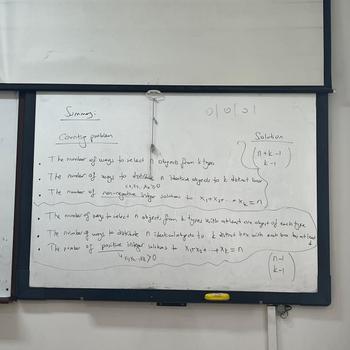 Summary:
0|0|0|
Counting problem
Solution
(n+k-1
k-1)
• The number of ways to select n objects from k types
• The number of ways to distribute n identical objects to k distinct boxes
x₁, x₂, xₖ ≥ 0
• The number of non-negative integer solutions to x₁+x₂+...+xₖ = n
• The number of ways to select n objects from k types with at least one object of each type
• The number of ways to distribute n identical objects to k distinct box with each box has at least 1
• The number of positive integer solutions to x₁+x₂+...+xₖ = n
↳ x₁, x₂, ..xₖ > 0
(n-1
k-1)